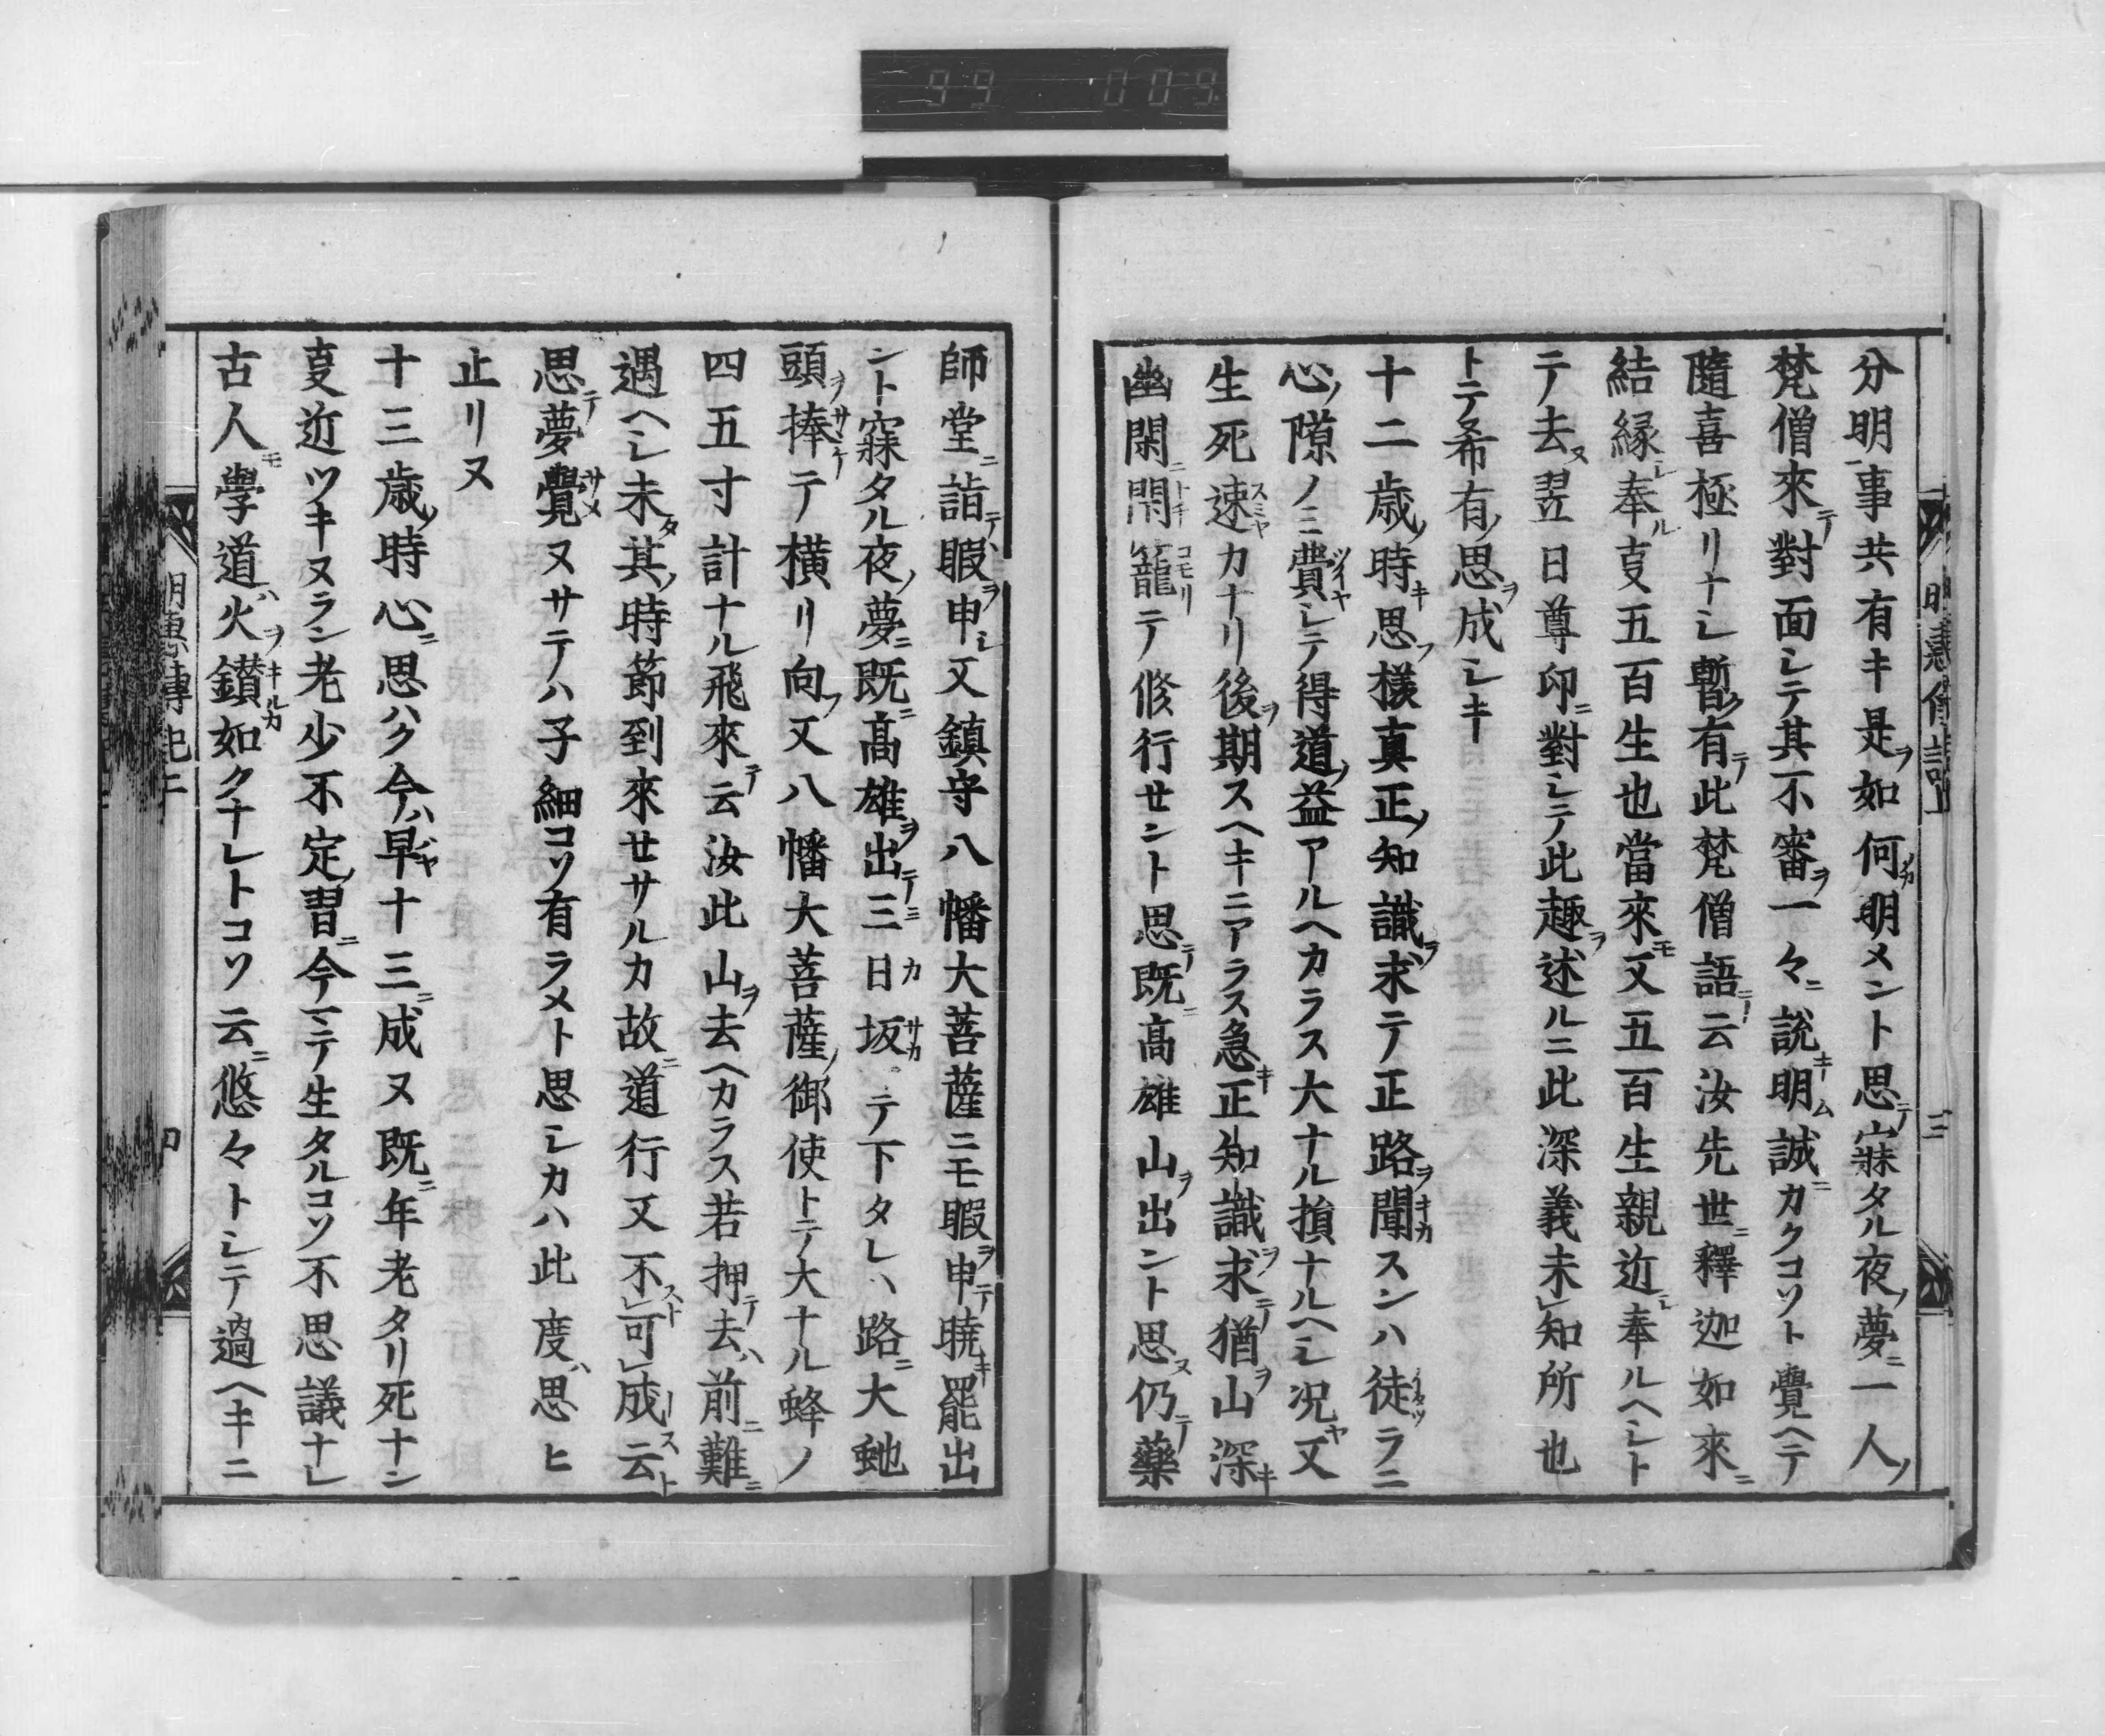 99 009
分明ノ事共有キ是ヲ如何カ明メント思テ寐タル夜ノ夢ニ一人ノ
梵僧來テ對面シテ其不審ヲ一々ニ説キ明ム誠ニカクコソト覺ヘテ
隨喜極リナシ暫ク有テ此梵僧語テ云汝先世ニ釋迦如來ニ
結縁シ奉ル叓五百生也當來モ又五百生親近シ奉ルヘシト
テ去ヌ翌日尊印ニ對シテ此趣ヲ述ルニ此深義未知所也
トテ希有ノ思ヲ成シキ
十二歳ノ時キ思フ樣真正ノ知識ヲ求テ正路ヲキカ聞スンハ徒イタツラニ
心ノ隙ノミ費ツイヤシテ得道ノ益アルヘカラス大ナル損ナルヘシ况ヤ又
生死速スミヤカナリ後ヲ期スヘキニアラス急キ正知識ヲ求テ猶ヲ山深キ
幽閑ニ閇トチ籠コモリテ修行セント思テ既ニ高雄山ヲ出ント思ヌ仍テ藥
師堂ニ詣テ暇ヲ申シ又鎮守八幡大菩薩ニモ暇ヲ申テ曉キ罷出
ント寐タル夜ノ夢ニ既ニ髙雄ヲ出テ三ミ日カ坂サカテ下タレハ路ニ大虵
頭ヲ捧サヽケテ横リ向フ又八幡大菩薩ノ御使トテ大ナル蜂ノ
四五寸計ナル飛來テ云汝此山ヲ去ヘカラス若押テ去ハ前ニ難ニ
遇ヘシ未タ其ノ時節到來セサルカ故ニ道行又不可成スト云スト
思テ夢覺サメヌサテハ子細コソ有ラメト思シカハ此度ハ思ヒ
止リヌ
十三歳ノ時心ニ思ハク今ハ早ハヤ十三ニ成ヌ既ニ年老タリ死ナン
叓近ツキヌラン老少不定ノ習ニ今マテ生タルコソ不思議ナレ
古人モ學道ハ火ヲ鑚キルカ如クナレトコソ云ニ悠々トシテ過ヘキニ